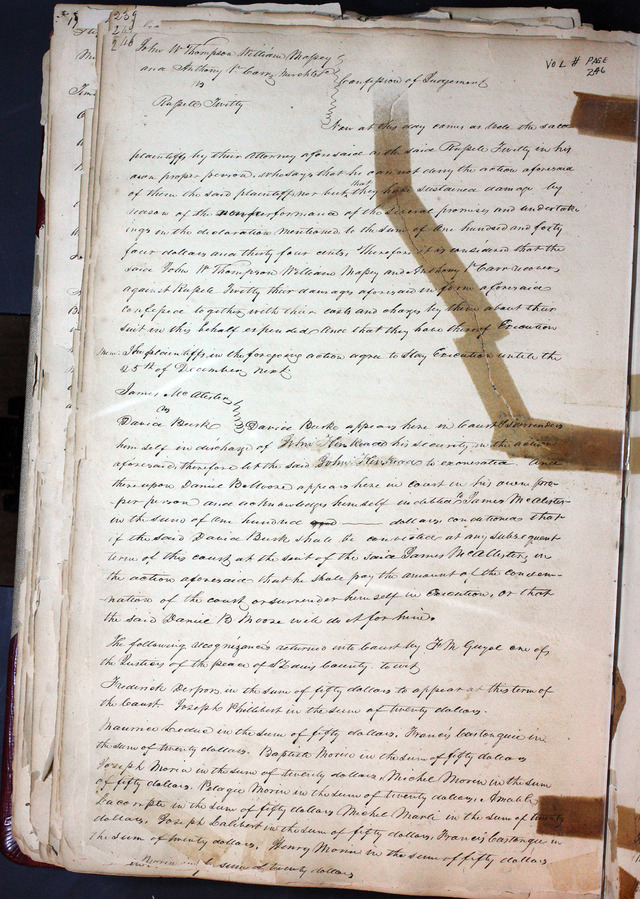 239
246
VOL H PAGE
246
John W Thompson William Massey
and Anthony V Carr
vs
Confession of Judgement
Russell Twitty
Now at this day comes as well the said
plaintiffs by their Attorney aforesaid as the said Russell Twitty in his
own proper person, who says that he can not deny the action aforesaid
of them the said plaintiffs nor but that they have sustained damage by
reason of the nonperformance of the several promises and undertak
ings in the declaration mentioned to the sum of One hundred and forty
four dollars and thirty four cents, Therefore it is considered that the
said John W Thompson William Massey and Anthony V Carr recover
against Russell Twitty their damages aforesaid in form aforesaid
confessed together with their costs and charges by them about their
suit in this behalf expended And that they have thereof Execution
Mem: The plaintiffs in the foregoing action agree to Stay Execution until the
25th of December next
James McAlister
vs
David Burk
David Burke appears here in Court & surrenders
himself in discharge of John his security in the action
aforesaid therefore let the said John be exonerated. And
thereupon Daniel B Moore appears here in court in his own pro-
per person and acknowledges himself indebted to James McAlister
in the sum of one hundred dollars conditioned that
if the said David Burk shall be convicted at any subsequent
term of this court at the suit of the said James McAllister, in
the action aforesaid that he shall pay the amount of the condem-
nation of the court or surrender himself in execution, or that
the said Daniel B Moore will do it for him.
The following recognizances returned into Court by F M Guyol one of
the Justices of the peace of St Louis County to wit
Frederick in the sum of fifty dollars to appear at this term of
the Court Joseph Philibert in the sum of twenty dollars.
Maurice Ledue in the sum of fifty dollars, Francis Castonguie in
the sum of twenty dollars. Baptiste Morin in the sum of fifty dollars
Joseph Morin in the sum of twenty dollars, Michel Morin in the sum
of fifty dollars. Morin in the sum of twenty dollars.
in the sum of fifty dollars Michel Marli in the sum of twenty
dollars, Joseph Laliberti in the sum of fifty dollars, Francis Castongue in
the sum of twenty dollars. Henry Morin in the sum of fifty dollars
Morin in the sum of twenty dollars